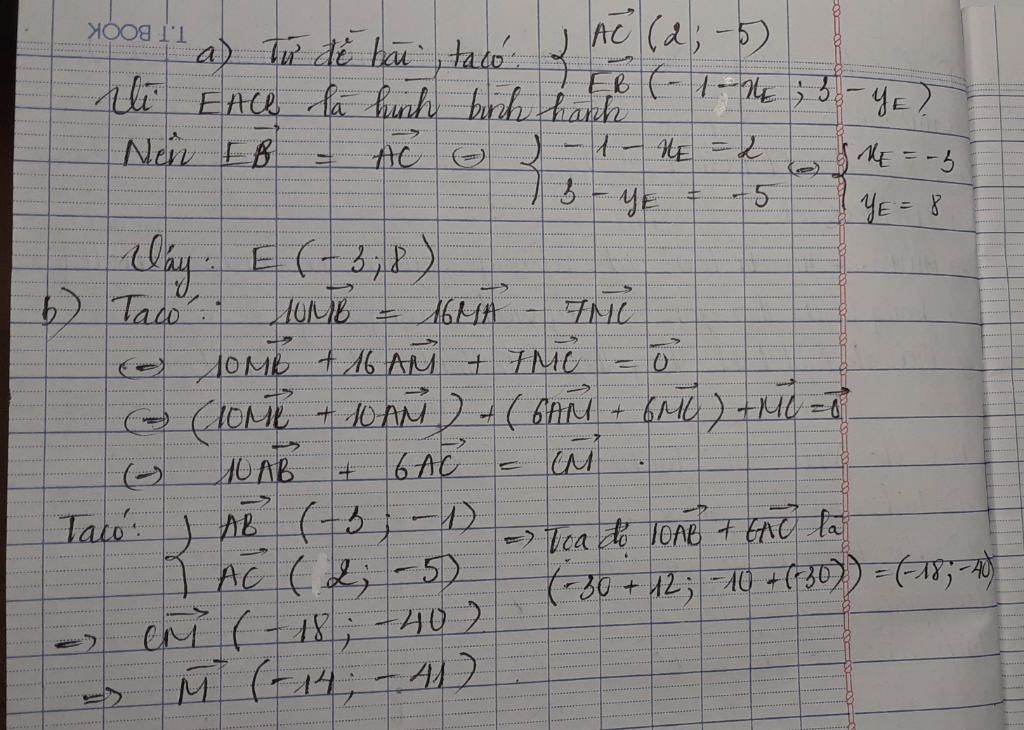 T.T BOOK
a) Từ đề bài, ta có: { AC→ (2; -5)
EB→ (-1 - xE; 3 - yE)
Vì EACB là hình bình hành
Nên EB→ = AC→ ⇔ { -1 - xE = 2 ⇔ { xE = -3
3 - yE = -5 yE = 8
Vậy: E (-3; 8)
b) Ta có: 10MB→ = 16MA→ - 7MC→
⇔ 10MB→ + 16AM→ + 7MC→ = 0→
⇔ (10MB→ + 10AM→) + (6AM→ + 6MC→) + MC→ = 0→
⇔ 10AB→ + 6AC→ = CM→.
Ta có: { AB→ (-3; -1) ⇒ Tọa độ 10AB→ + 6AC→ là
AC→ (2; -5) (-30 + 12; -10 + (-30)) = (-18; -40)
⇒ CM→ (-18; -40)
⇒ M→ (-14; -41)